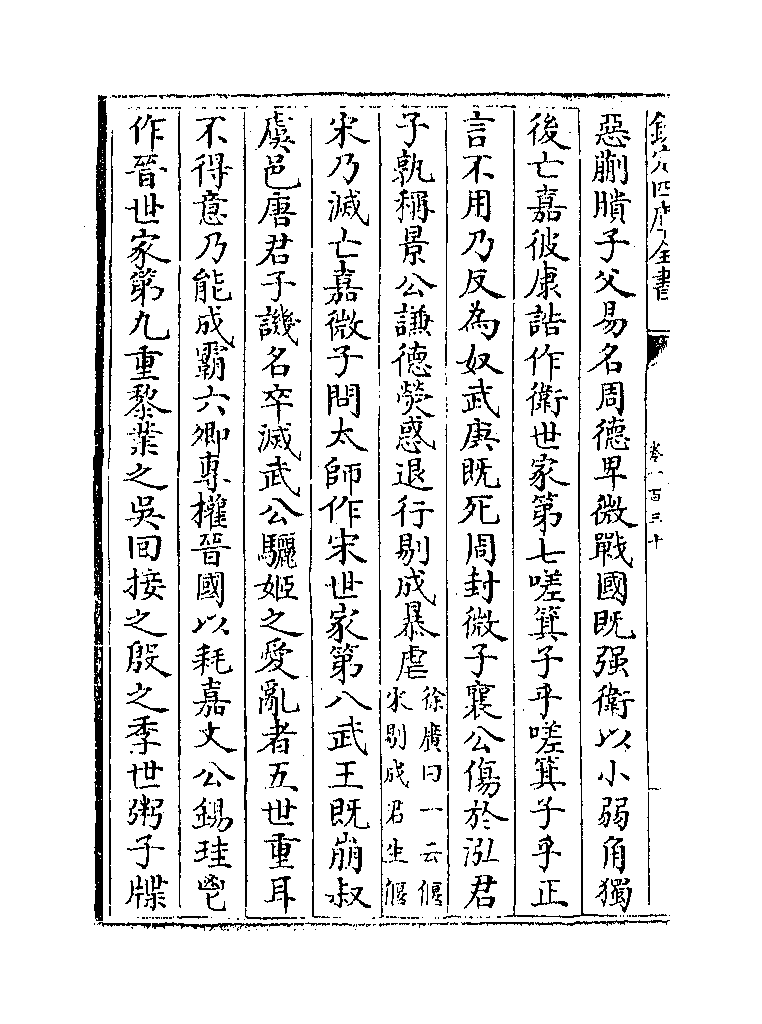 欽定四庫全書
卷一百三十
惡蒯聵子父易名周德卑微戰國既强衛以小弱角獨
後亡嘉彼康誥作衛世家第七嗟箕子乎嗟箕子乎正
言不用乃反為奴武庚既死周封微子襄公傷於泓君
子孰稱景公謙德熒惑退行剔成暴虐徐廣曰一云偃宋剔成君生偃
宋乃滅亡嘉微子問太師作宋世家第八武王既崩叔
虞邑唐君子譏名卒滅武公驪姬之愛亂者五世重耳
不得意乃能成霸六卿專權晉國以耗嘉文公錫珪鬯
作晉世家第九重黎業之吳回接之殷之季世粥子牒